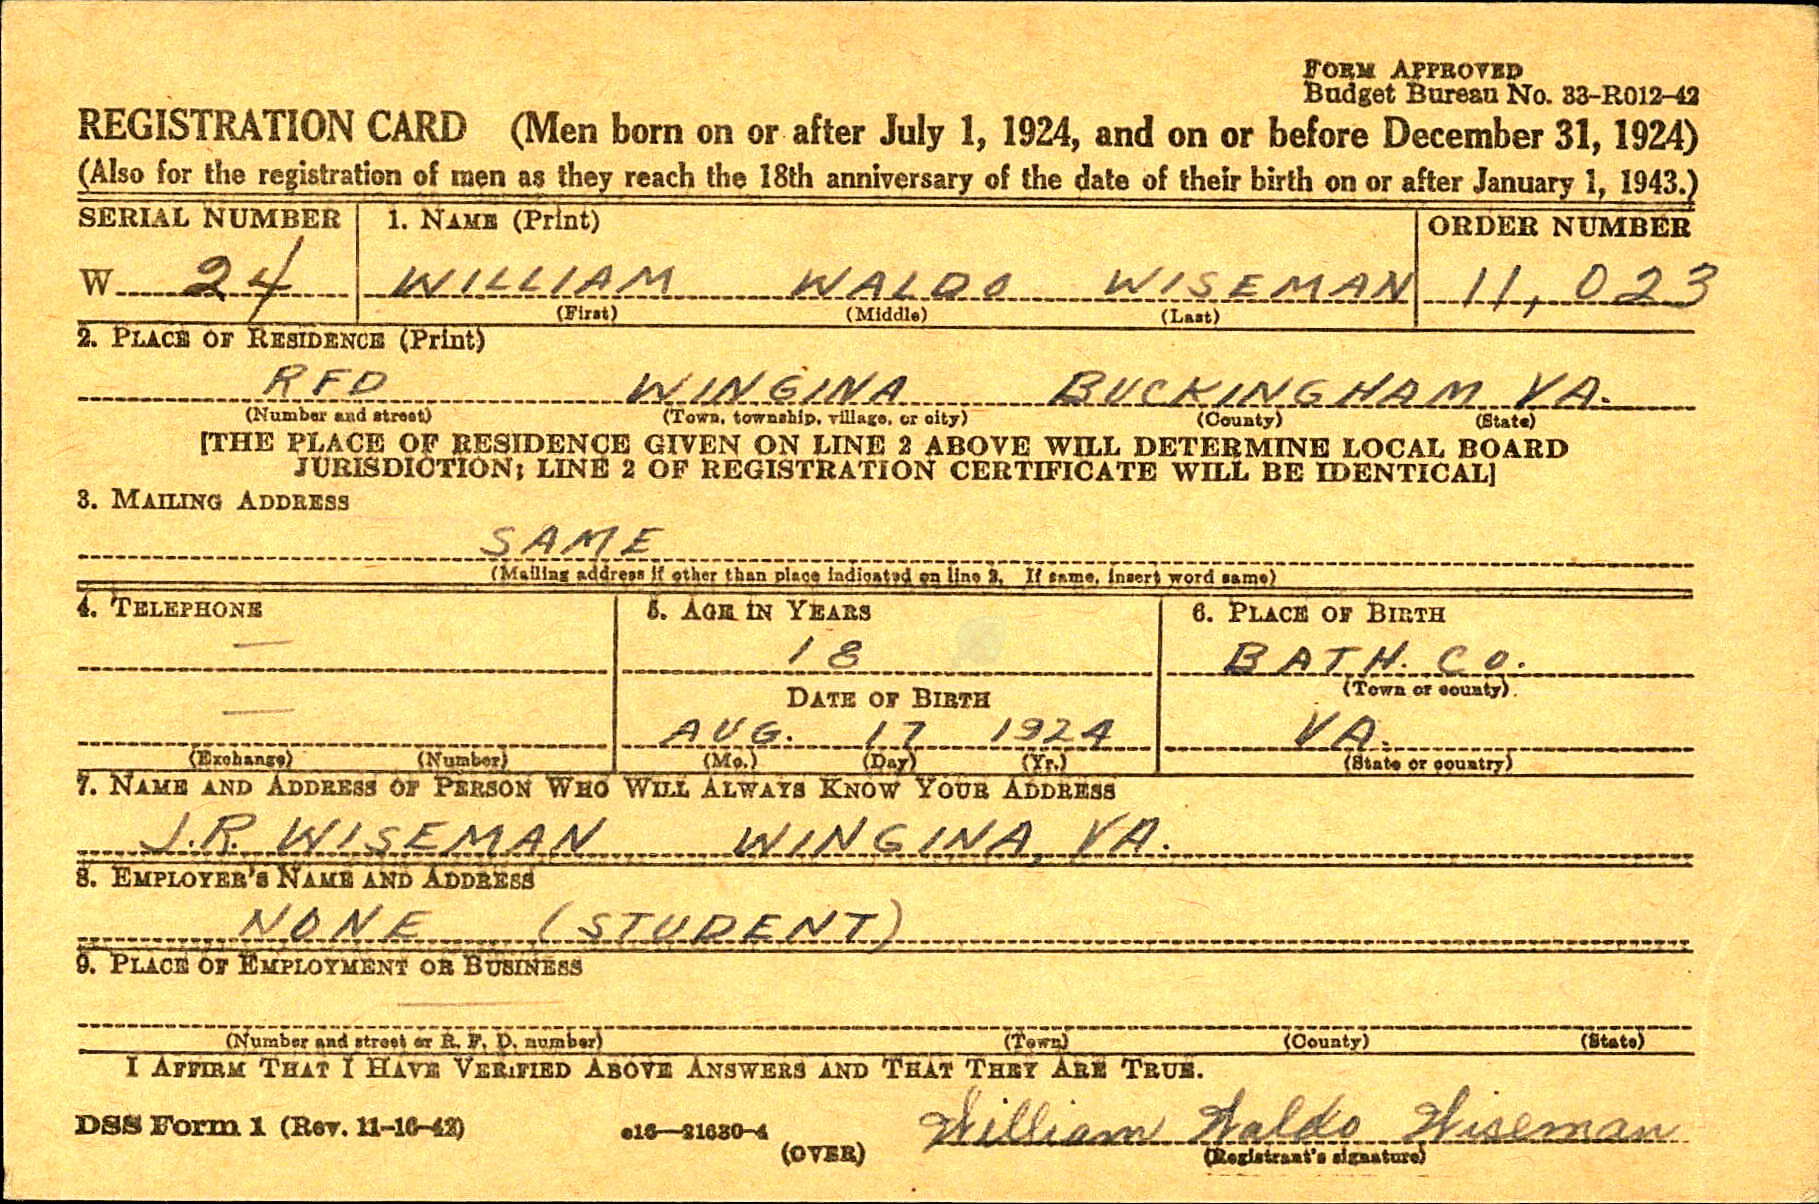 FORM APPROVED
Budget Bureau No. 33-R012-42
REGISTRATION CARD (Men born on or after July 1, 1924, and on or before December 31, 1924)
(Also for the registration of men as they reach the 18th anniversary of the date of their birth on or after January 1, 1943.)
SERIAL NUMBER 1. NAME (Print) ORDER NUMBER
W 24 WILLIAM WALDO WISEMAN 11,023
(First) (Middle) (Last)
2. PLACE OF RESIDENCE (Print)
RFD WINGINA BUCKINGHAM VA.
(Number and street) (Town, township, village, or city) (County) (State)
[THE PLACE OF RESIDENCE GIVEN ON LINE 2 ABOVE WILL DETERMINE LOCAL BOARD
JURISDICTION; LINE 2 OF REGISTRATION CERTIFICATE WILL BE IDENTICAL]
3. MAILING ADDRESS
SAME
(Mailing address if other than place indicated on line 2. If same, insert word same)
4. TELEPHONE 5. AGE IN YEARS 6. PLACE OF BIRTH
— 18 BATH. CO.
(Town or county)
DATE OF BIRTH
— AUG. 17 1924 VA.
(Exchange) (Number) (Mo.) (Day) (Yr.) (State or country)
7. NAME AND ADDRESS OF PERSON WHO WILL ALWAYS KNOW YOUR ADDRESS
J.R. WISEMAN WINGINA, VA.
8. EMPLOYER'S NAME AND ADDRESS
NONE (STUDENT)
9. PLACE OF EMPLOYMENT OR BUSINESS
—
(Number and street or R. F. D. number) (Town) (County) (State)
I AFFIRM THAT I HAVE VERIFIED ABOVE ANSWERS AND THAT THEY ARE TRUE.
DSS Form 1 (Rev. 11-16-42) c16—21630-4 (OVER) William Waldo Wiseman
(Registrant's signature)